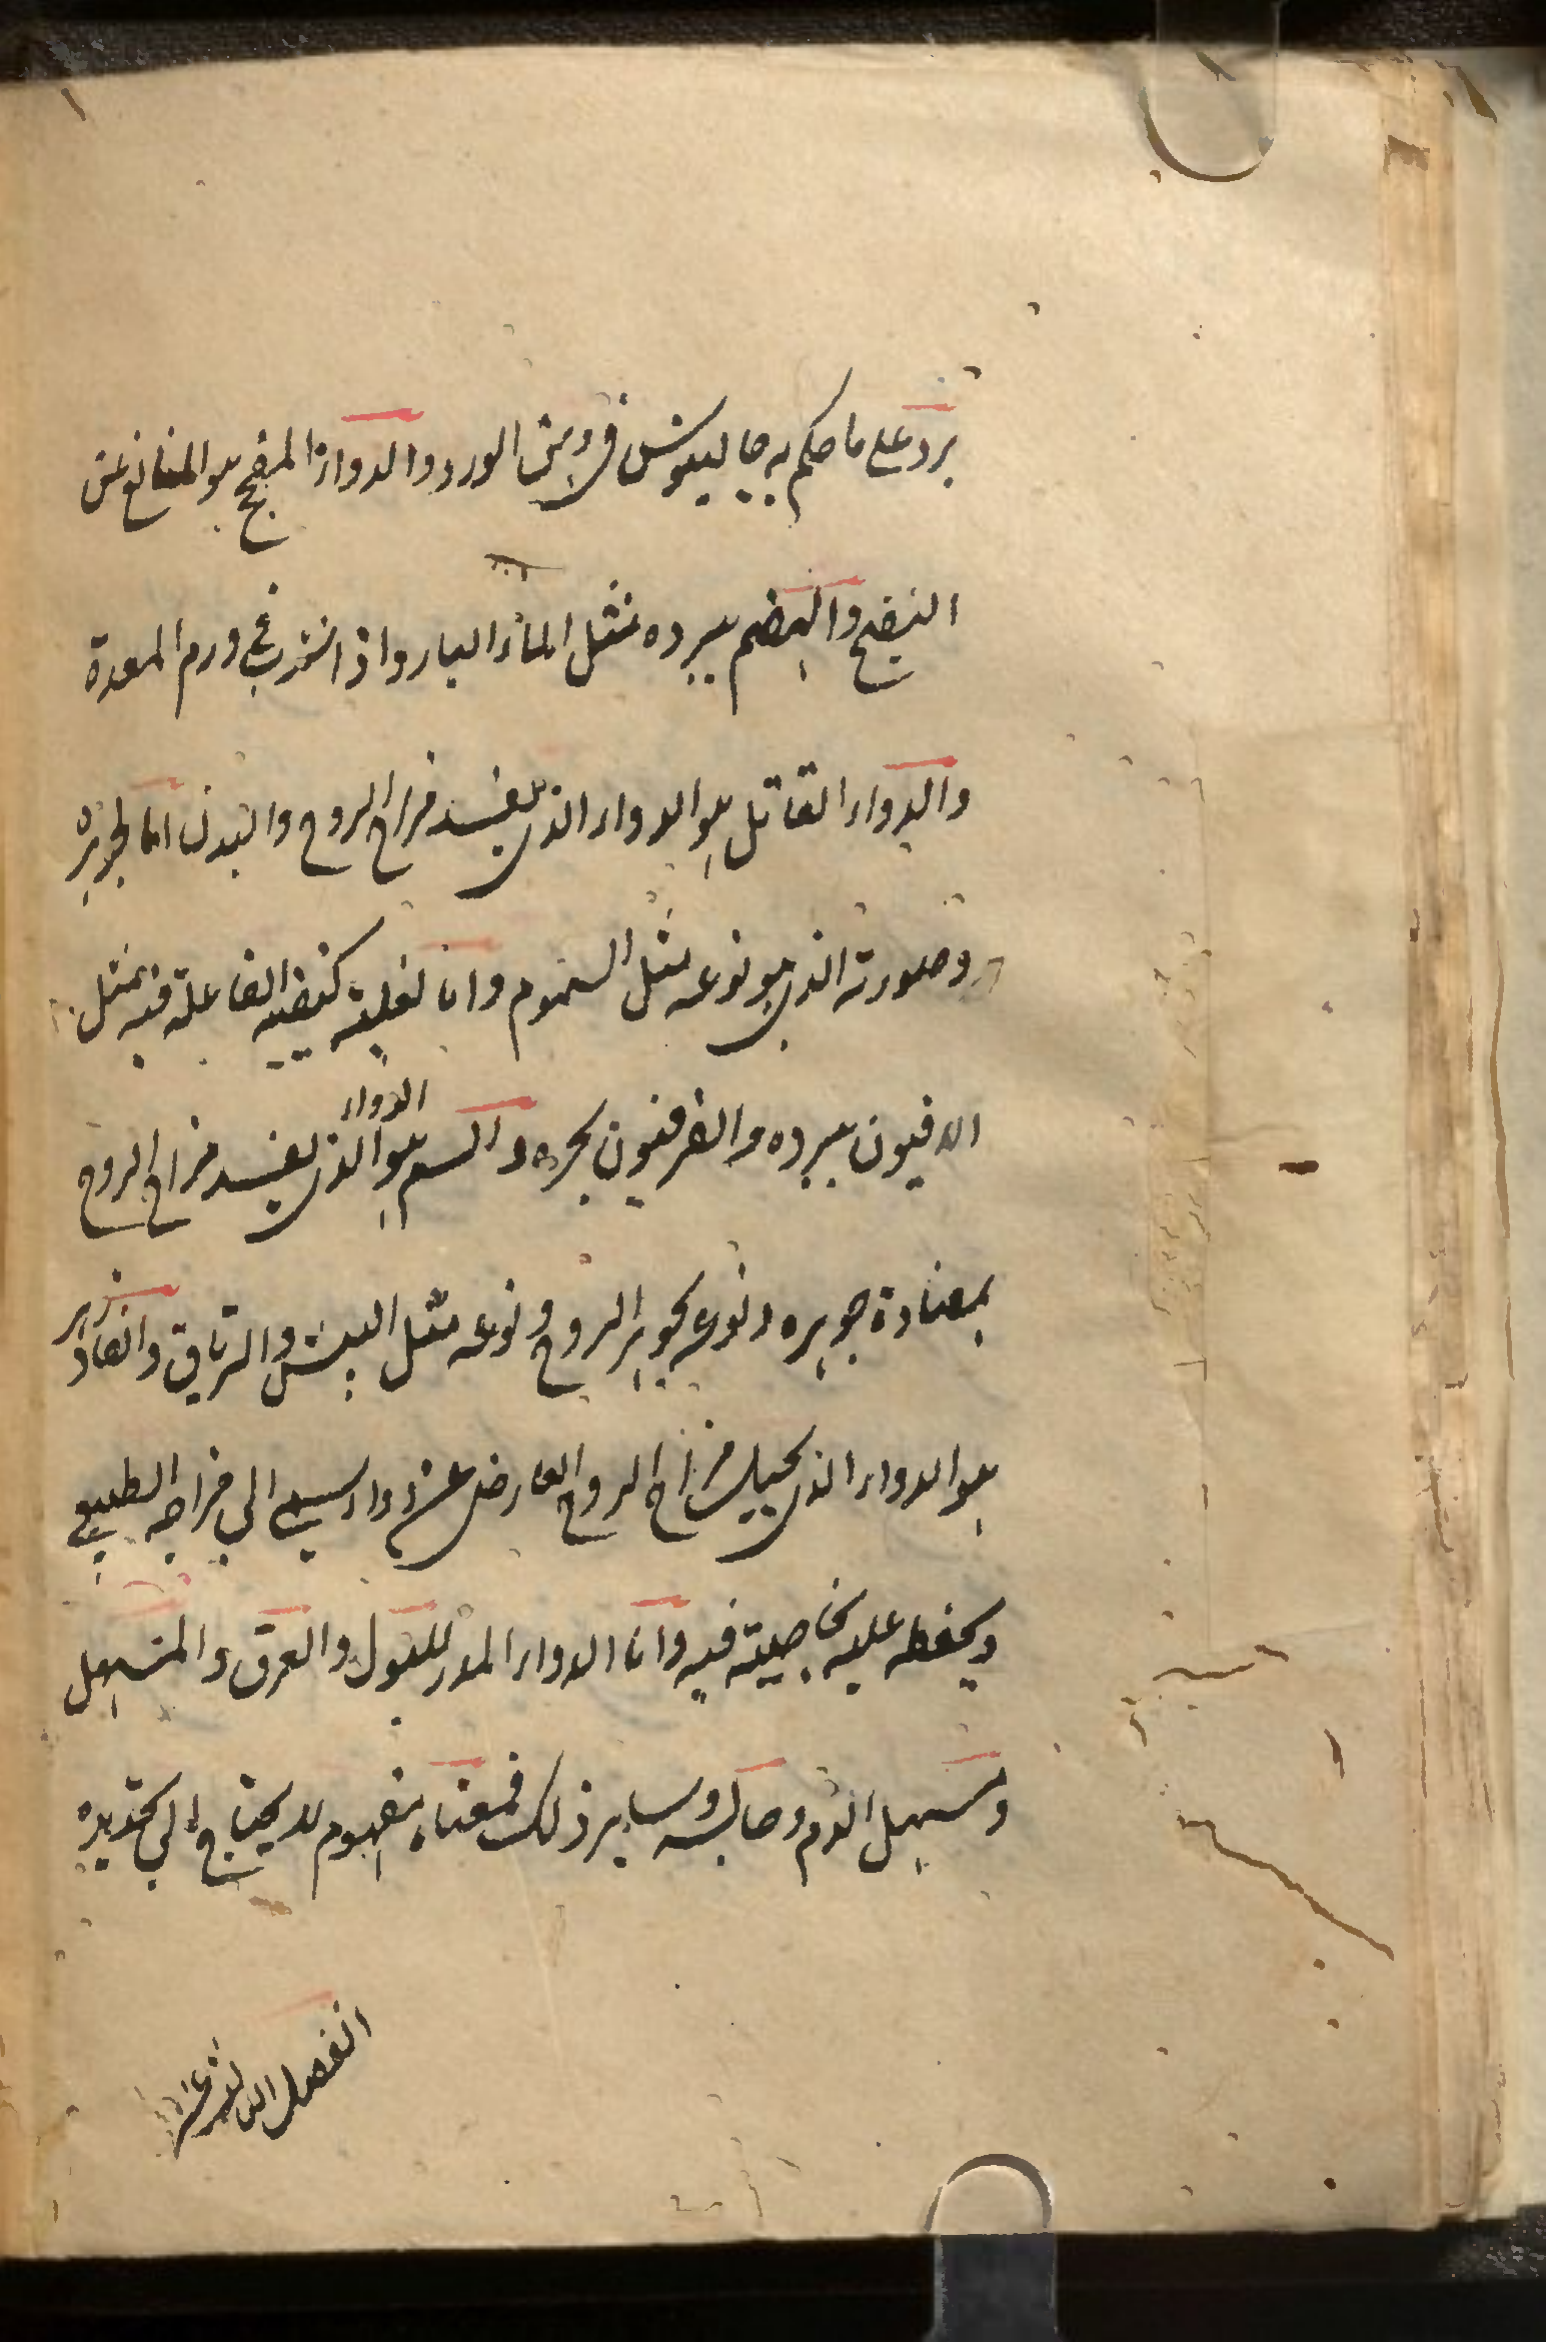 برد على ما حكم به جالينوس في دهن الورد والدواء المفجج هو المانع عن
النضج والهضم ببرده مثل الماء البارد اذا شرب في ورم المعدة
والدواء القاتل هو الدواء الذي يفسد مزاج الروح والبدن اما لجوهره
وصورته الذي هو نوعه مثل السموم واما لغلبة كيفيته الفاعلة فيه مثل
الافيون ببرده والفرفيون بحره والسم هو الدواء الذي يفسد مزاج الروح
بمضادة جوهره ونوعه لجوهر الروح ونوعه مثل البيش والترياق والفادزهر
هو الدواء الذي يحيل مزاج الروح العارض عن دواء سمي الى مزاجه الطبيعي
ويحفظه عليه بخاصيته فيه واما الدواء المدر للبول والعرق والمسهل
ومسهل الدم وحابسه وساير ذلك فمعناه مفهوم لا يحتاج الى تحديده
الفصل